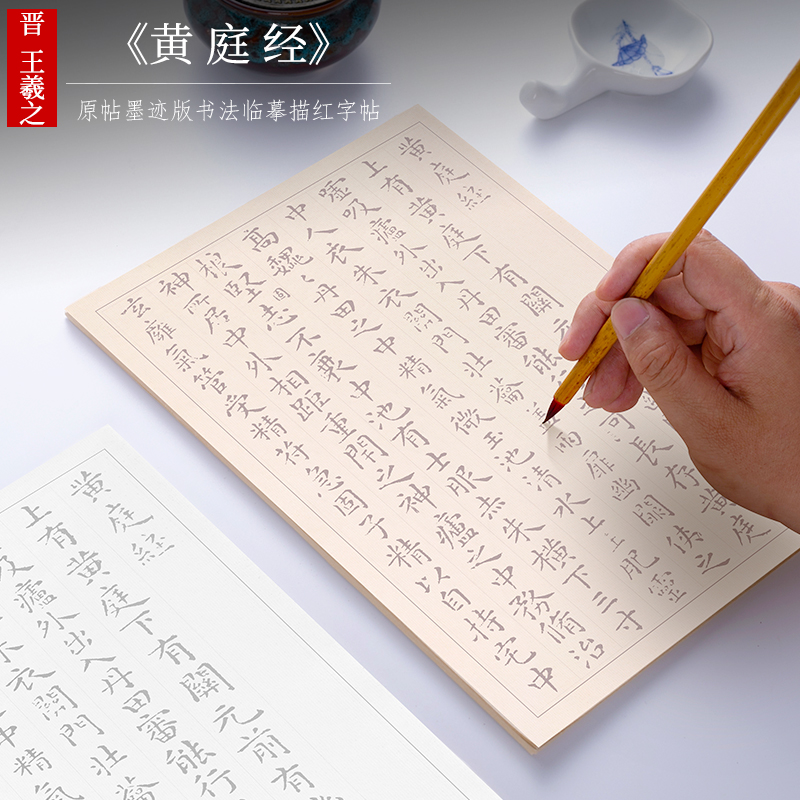 晋 王羲之
《黄庭经》
原帖墨迹版书法临摹描红字帖
黄庭經
上有黄庭下有關元
嘘吸廬外出入丹田審能可長存黄庭
中人衣朱衣關門壯籥兩扉幽關侠之
高巍〻丹田之中精氣微玉池清水上生肥靈
根堅固志不衰中池有士服赤朱横下三寸
神所居中外相距重閇之神廬之中務脩治
玄廱氣管受精符急固子精以自持宅中
黄庭經
上有黄庭下有關元前有
吸廬外出入丹田審能行
朱衣關門壯籥
中精氣